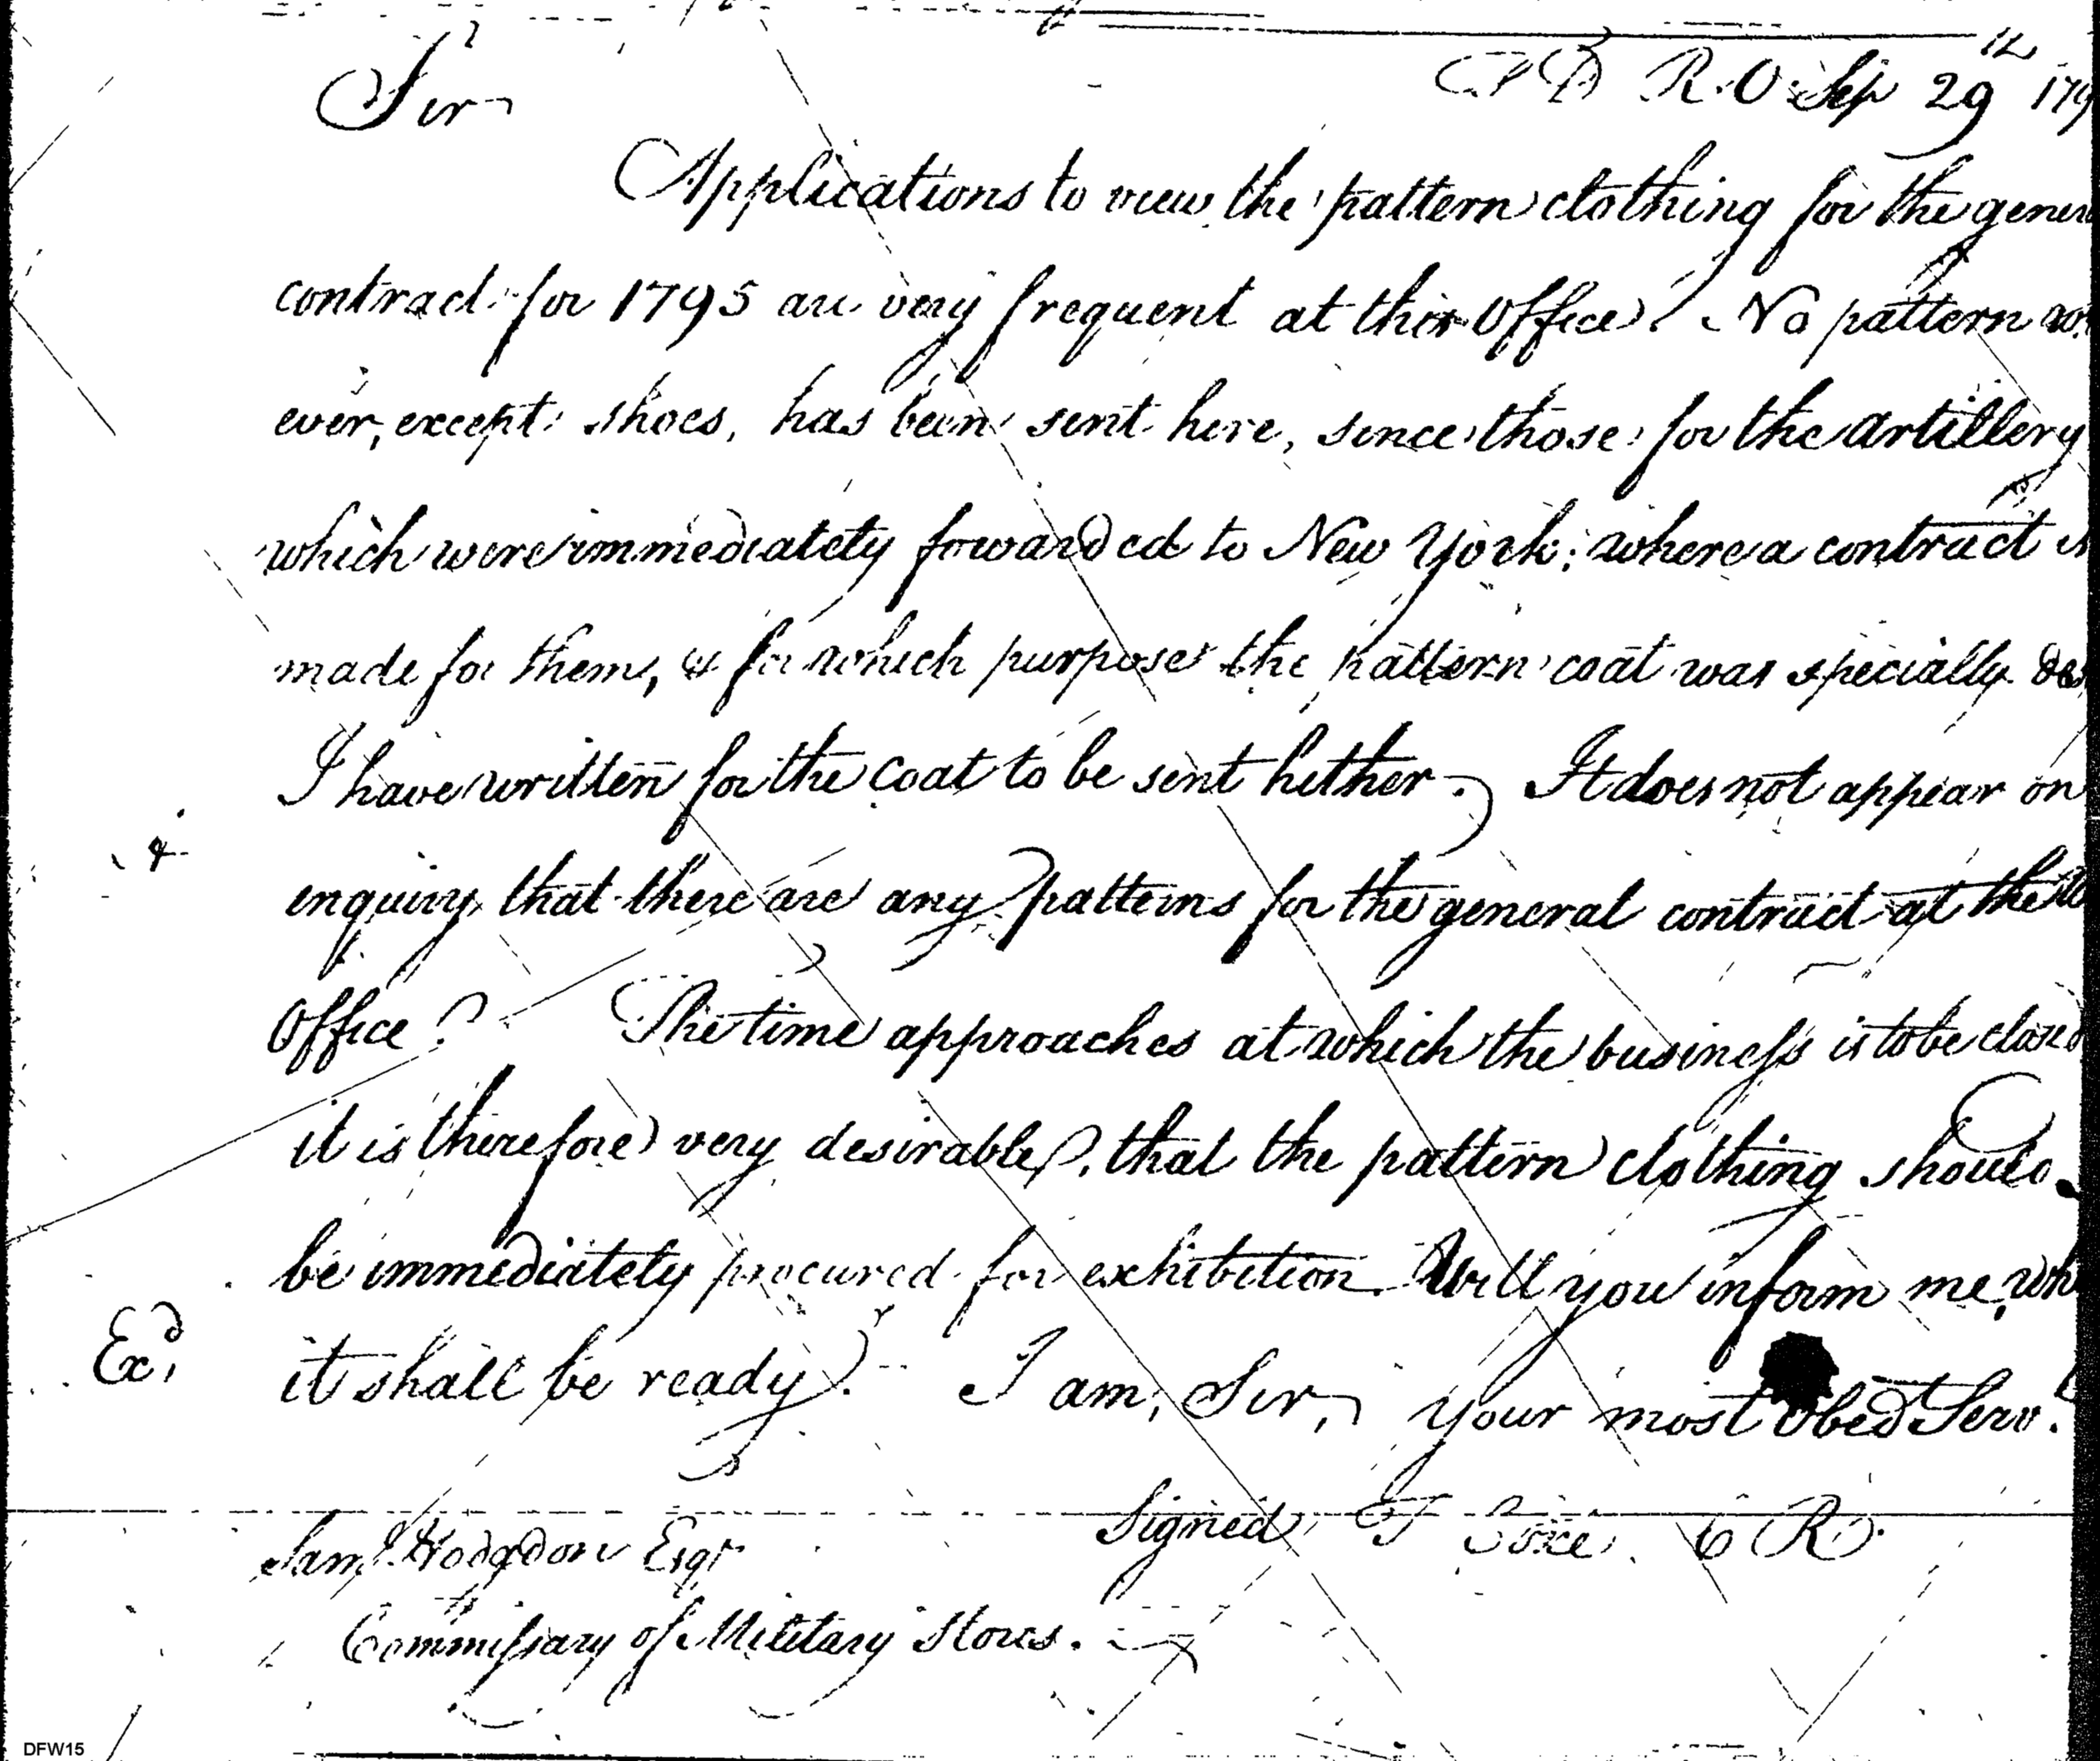 Sir
T D R.O Sep 29th 179
Applications to view the pattern clothing for the gener
contract for 1795 are very frequent at this Office. No pattern
ever, except shoes, has been sent here, since those for the artillery
which were immediately forwarded to New York; where a contract is
made for them, & for which purpose the pattern coat was specially des
I have written for the coat to be sent hither. It does not appear on
enquiry, that there are any patterns for the general contract at the
Office? The time approaches at which the business is to be closed
it is therefore very desirable, that the pattern clothing should
be immediately procured for exhibition. Will you inform me, wh
Exd, it shall be ready. I am, Sir, your most Obedt Servt.
Signed T Coxe. C R.
Saml. Hodgdon Esqr
Commissary of Military Stores.
DFW15